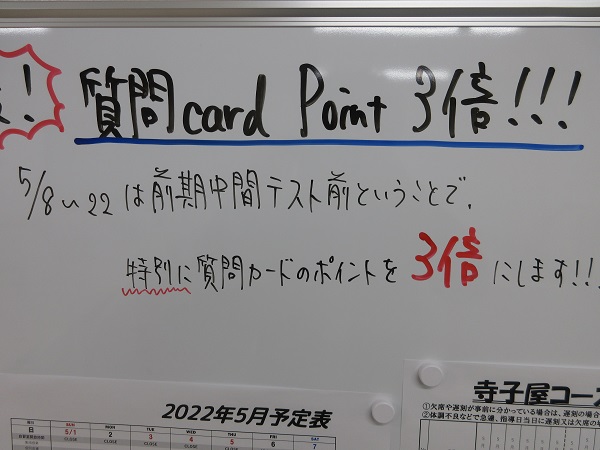 ！
質問card Point 3倍!!!
5/8～22は前期中間テスト前ということで、
特別に質問カードのポイントを3倍にします!!
2022年5月予定表
日 SUN MON TUE WED THU FRI SAT
日 5/1 2 3 4 5 6 7
CLOSE CLOSE CLOSE CLOSE CLOSE
寺子屋コース
①欠席や遅刻が事前に分かっている場合は、遅刻の場合
②体調不良などで急遽、指導日当日に遅刻又は欠席の場